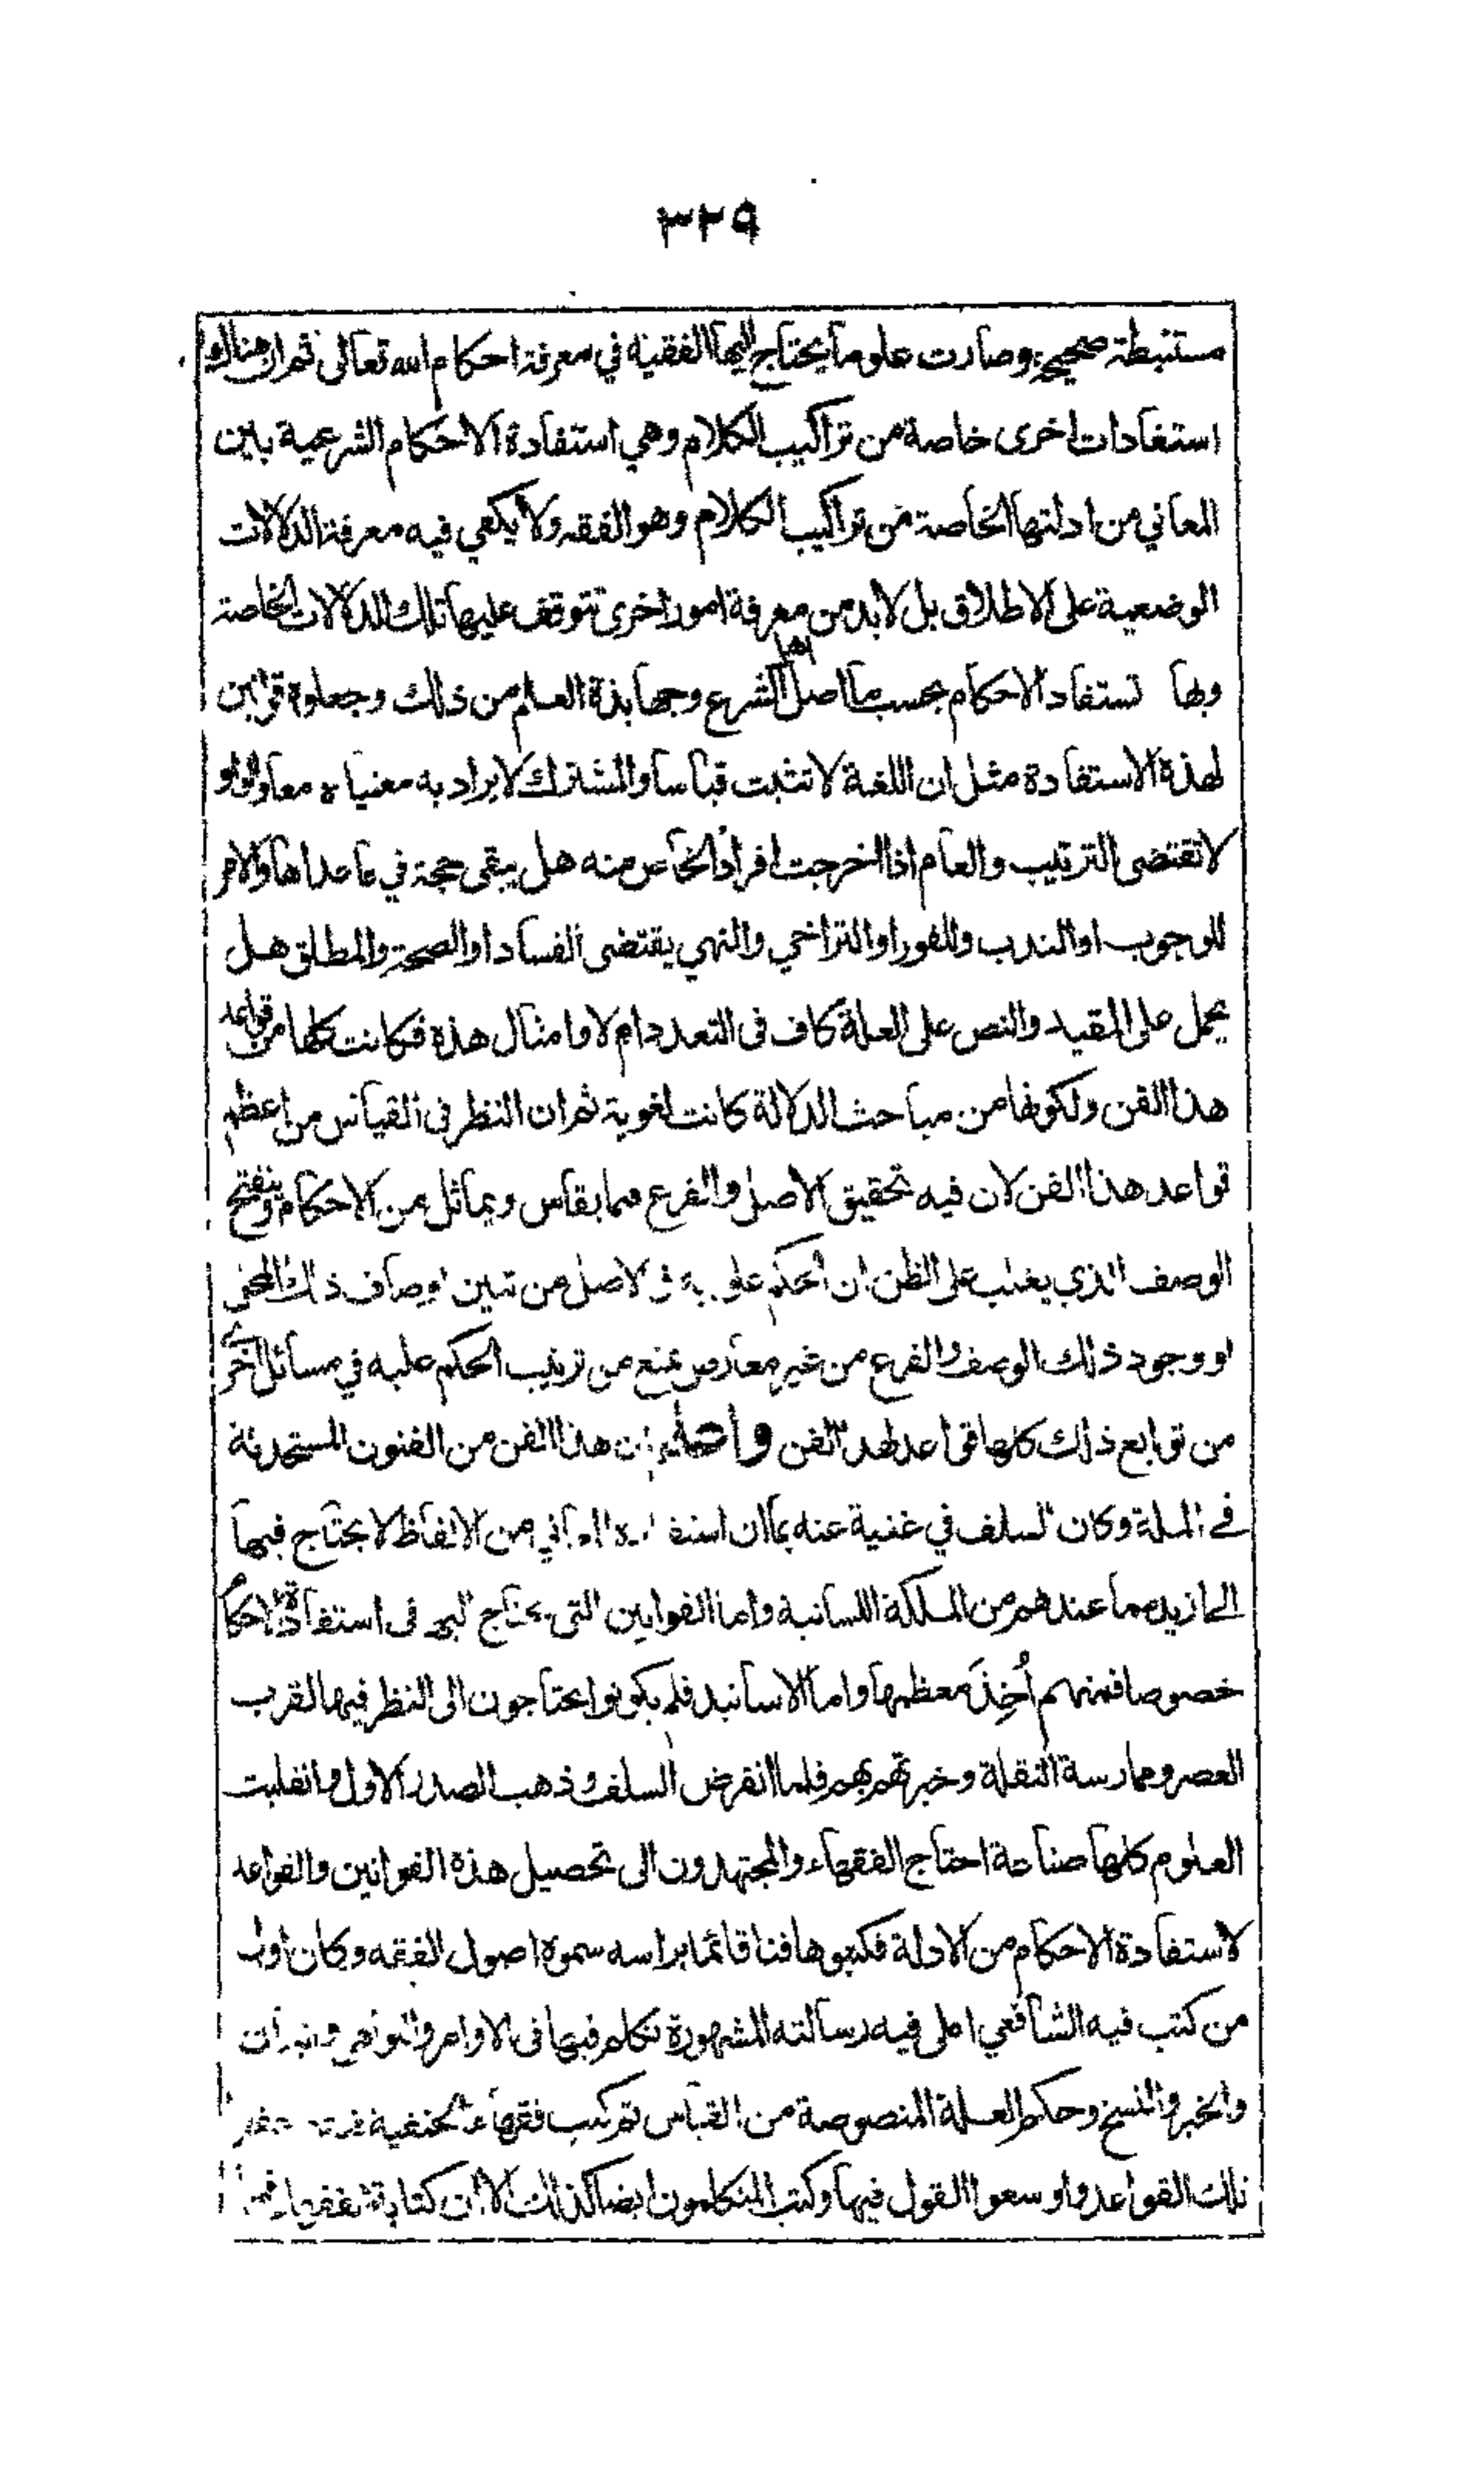 ٣٢٩
مستنبطة صحيحة وصارت علوما يحتاج اليها الفقيه في معرفة احكام الله تعالى ثم ان هناك
استفادات اخرى خاصة من تراكيب الكلام وهي استفادة الاحكام الشرعية بين
المعاني من ادلتها الخاصة من تراكيب الكلام وهو الفقه ولا يكفي فيه معرفة الدلالات
الوضعية على الاطلاق بل لابد من معرفة امور اخرى تتوقف عليها تلك الدلالات الخاصة
وبها تستفاد الاحكام بحسب ما اصل اهل الشرع وجهابذة العلم من ذلك وجعلوه قوانين
لهذه الاستفادة مثل ان اللغة لا تثبت قياسا والمشترك لا يراد به معنياه معا والواو
لا تقتضى الترتيب والعام اذا اخرجت افراد الخاص منه هل يبقى حجة في ما عداها والامر
للوجوب او الندب وللفور او التراخي والنهي يقتضى الفساد او الصحة والمطلق هل
يحمل على المقيد والنص على العلة كاف فى التعدد ام لا وامثال هذه فكانت كلها من قواعد
هذا الفن ولكونها من مباحث الدلالة كانت لغوية ثم ان النظر فى القياس من اعظم
قواعد هذا الفن لان فيه تحقيق الاصل والفرع فيما يقاس ويماثل من الاحكام وينفتح
الوصف الذي يغلب على الظن ان الحكم علق به فى الاصل من تبين اوصاف ذلك المحل
او وجود ذلك الوصف والفرع من غير معارض يمنع من ترتيب الحكم عليه في مسائل اخرى
من توابع ذلك كلها قواعد لهذا الفن واعلم ان هذا الفن من الفنون المستحدثة
في الملة وكان السلف في غنية عنه بما ان استفادة المعاني من الالفاظ لا يحتاج فيها
الى ازيد مما عندهم من الملكة اللسانية واما القوانين التى يحتاج اليها فى استفادة الاحكام
خصوصا فمنهم أُخِذَ معظمها واما الاسانيد فلم يكونوا يحتاجون الى النظر فيها لقرب
العصر وممارسة النقلة وخبرتهم بهم فلما انقرض السلف وذهب الصدر الاول وانقلبت
العلوم كلها صناعة احتاج الفقهاء والمجتهدون الى تحصيل هذه القوانين والقواعد
لاستفادة الاحكام من الادلة فكتبوها فنا قائما براسه سموه اصول الفقه وكان اول
من كتب فيه الشافعي املى فيه رسالته المشهورة تكلم فيها فى الاوامر والنواهى والبيان
والخبر والنسخ وحكم العلة المنصوصة من القياس ثم كتب فقهاء الحنفية فيه
تلك القواعد واوسعوا القول فيها وكتب المتكلمون ايضا كذلك الا ان كتابة الفقهاء فيها